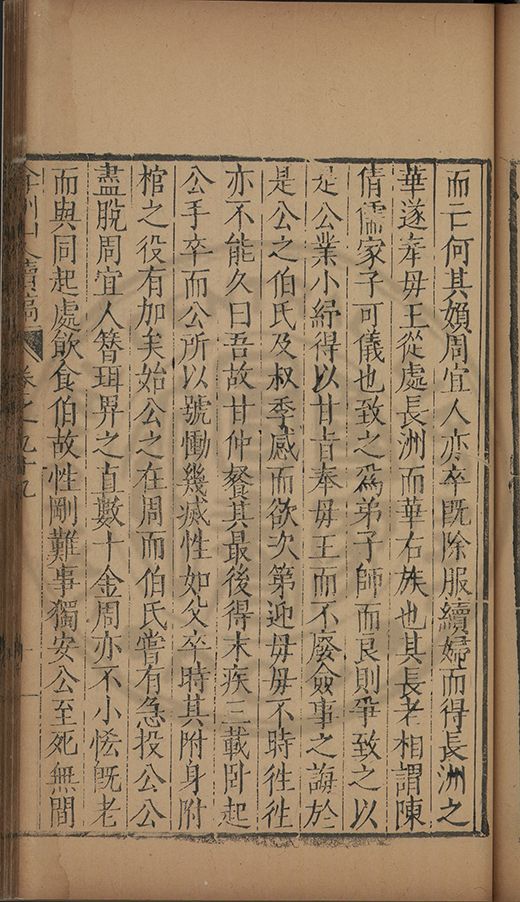 而亡何其嬪周宜人亦卒既除服續婦而得長洲之
華遂奉母王從處長洲而華右族也其長老相謂陳
倩儒家子可儀也致之爲弟子師而良則爭致之以
是公業小紓得以甘旨奉母王而不廢僉事之誨於
是公之伯氏及叔季感而欲次第迎母母不時徃徃
亦不能久曰吾故甘仲餐其最後得末疾三載卧起
公手卒而公所以號慟幾滅性如父卒時其附身附
棺之役有加矣始公之在周而伯氏嘗有急投公公
盡脫周宜人簪珥畀之直數十金周亦不小恡既老
而與同起處飲食伯故性剛難事獨安公至死無間
弇州山人續稿 卷之九十九